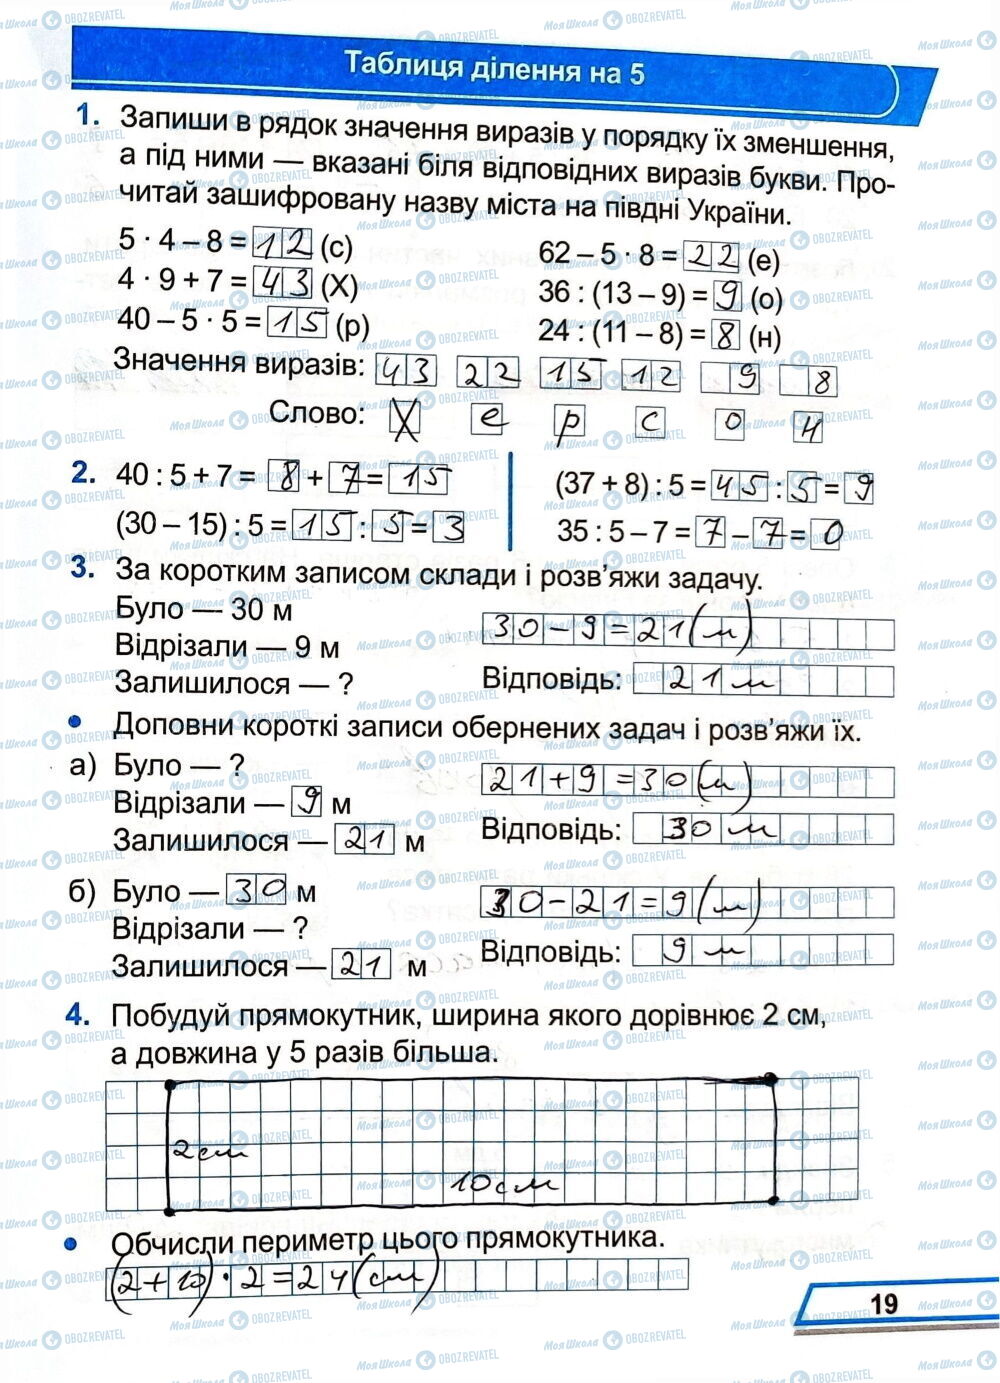 Таблиця ділення на 5
1. Запиши в рядок значення виразів у порядку їх зменшення,
а під ними — вказані біля відповідних виразів букви. Про-
читай зашифровану назву міста на півдні України.
5 · 4 – 8 = 12 (с)
4 · 9 + 7 = 43 (Х)
40 – 5 · 5 = 15 (р)
62 – 5 · 8 = 22 (е)
36 : (13 – 9) = 9 (о)
24 : (11 – 8) = 8 (н)
Значення виразів: 43 22 15 12 9 8
Слово: Х е р с о н
2. 40 : 5 + 7 = 8 + 7 = 15
(30 – 15) : 5 = 15 : 5 = 3
(37 + 8) : 5 = 45 : 5 = 9
35 : 5 – 7 = 7 – 7 = 0
3. За коротким записом склади і розв’яжи задачу.
Було — 30 м
Відрізали — 9 м
Залишилося — ?
30 – 9 = 21 (м)
Відповідь: 21 м
• Доповни короткі записи обернених задач і розв’яжи їх.
а) Було — ?
Відрізали — 9 м
Залишилося — 21 м
21 + 9 = 30 (м)
Відповідь: 30 м
б) Було — 30 м
Відрізали — ?
Залишилося — 21 м
30 – 21 = 9 (м)
Відповідь: 9 м
4. Побудуй прямокутник, ширина якого дорівнює 2 см,
а довжина у 5 разів більша.
2 см
10 см
• Обчисли периметр цього прямокутника.
(2 + 10) · 2 = 24 (см)
19
МояШкола OBOZREVATEL